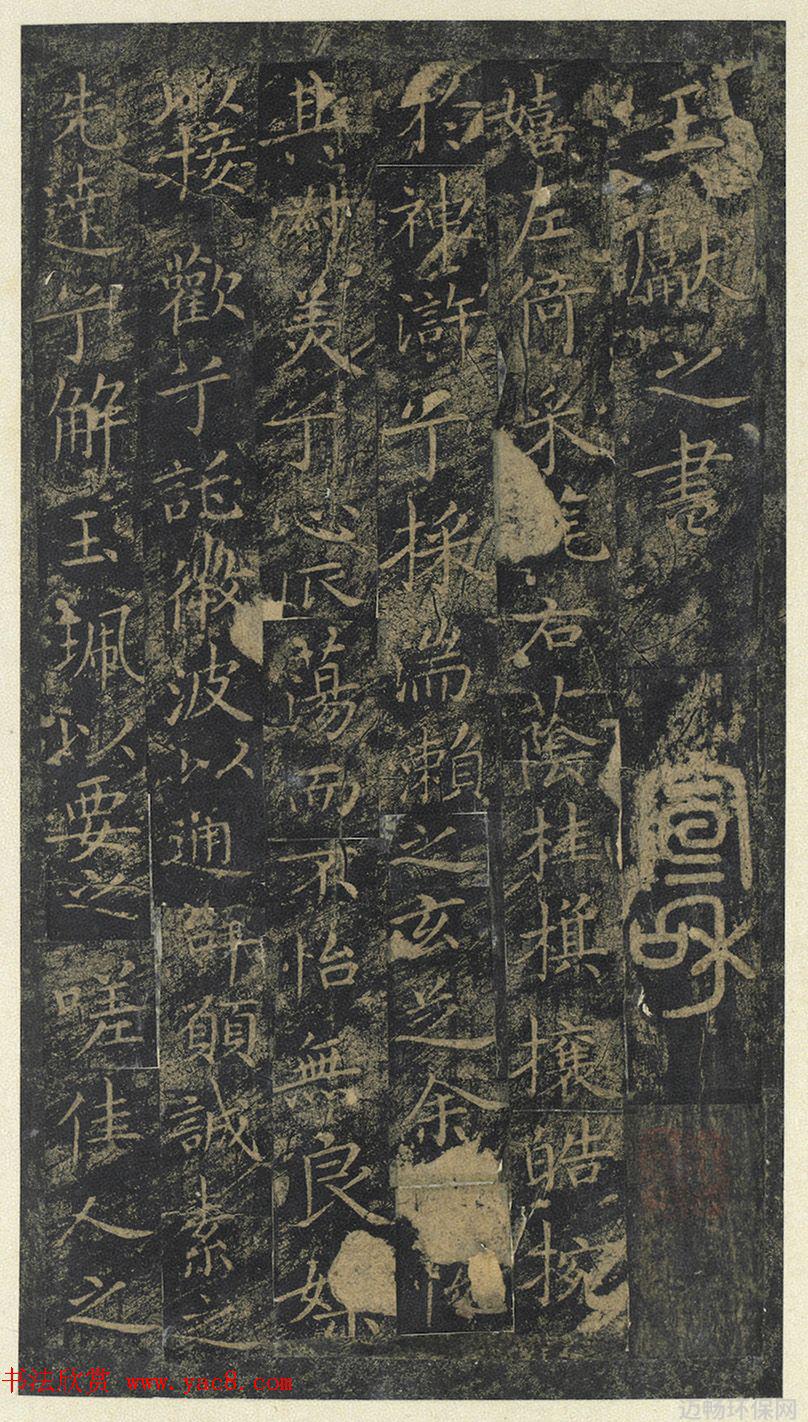 王獻之書
宣和
嬉左倚采旄右蔭桂棋攘皓捥
於神滸兮採湍瀨之玄芝余
其淑美兮心振蕩而不怡無良媒
以接歡兮託微波以通辭願誠素之
先達兮解玉珮以要之嗟佳人之
书法欣赏 www.yac8.com
迈畅环保网